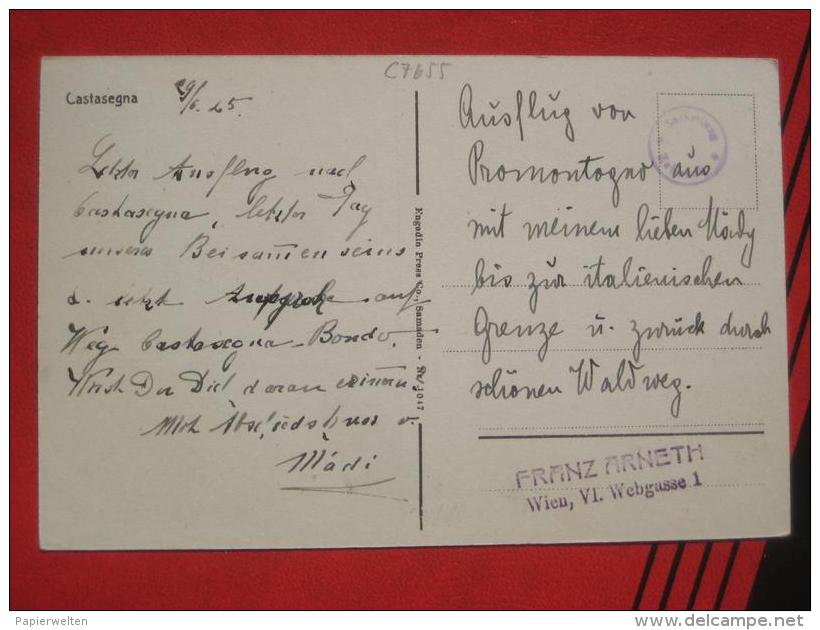 C7655
Castasegna
29/6. 25.
Letzter Ausflug nach
Castasegna, letzter Tag
unseres Beisammenseins
u. letzte auf
Weg Castasegna - Bondo.
Wirst Du Dich daran erinnern,
Abschiedskuss v.
Mädi
Engadin Press Co., Samaden - Nr. 1047
Ausflug von
Promontogno aus
mit meinem lieben Mädy
bis zur italienischen
Grenze u. zurück durch
schönen Waldweg.
FRANZ ARNETH
Wien, VI. Webgasse 1
Papierwelten
delcampe.net